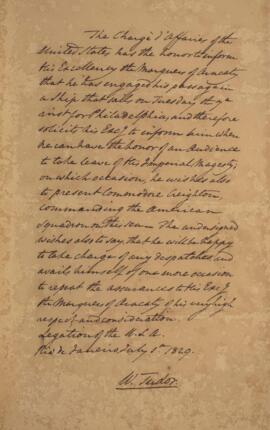 The Chargé d'Affaires of the
United States has the honor to inform
His Excellency the Marquess of Aracaty
that he has engaged his passage in
a ship that sails on Tuesday the 7th
inst for Philadelphia, and therefore
solicits his Exy to inform him when
he can have the honor of an Audience
to take leave of His Imperial Majesty,
on which occasion, he wishes also
to present Commodore Creighton,
commanding the American
Squadron on this sea. The undersigned
wishes also to say, that he will be happy
to take charge of any despatches and
avails himself of one more occasion
to repeat the assurances to His Exy
the Marquess of Aracaty of his very high
respect and consideration.
Legation of the U.S.A.
Rio de Janeiro July 1st 1829.
W. Tudor.